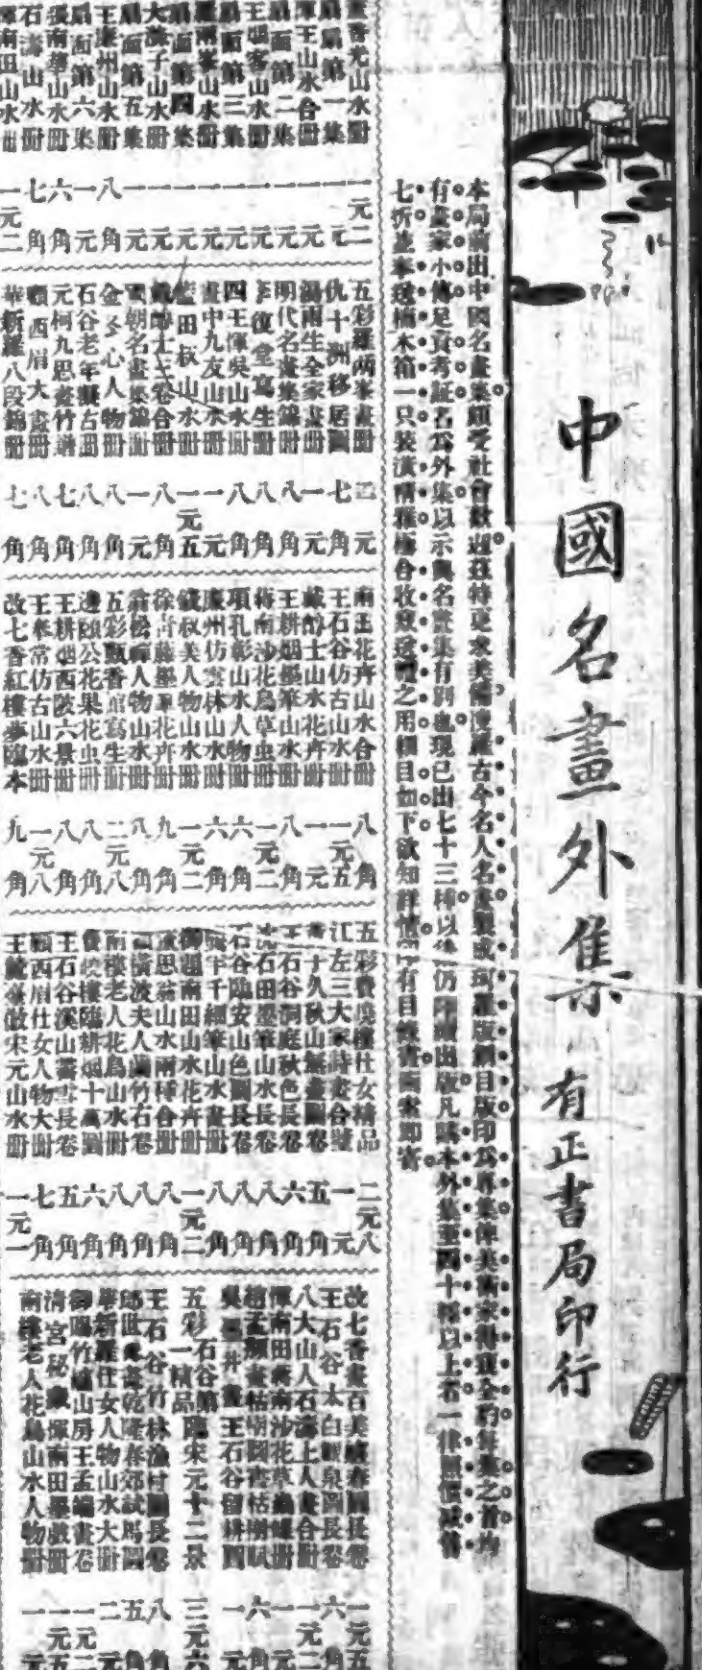 中國名畫外集 有正書局印行
本局前出中國名畫集頗受社會歡迎茲特更求美備搜羅古今名人名畫製成珂羅版銅目版印為單集俾美術家得窺全豹每集之首均
有畫家小傳足資考証名為外集以示與名畫集有別也現已出七十三種以後仍陸續出版凡購本外集至四十種以上者一律照價減售
七折並奉送楠木箱一只裝潢精雅極合收藏送禮之用種目如下欲知詳情即有目錄書函索即寄
畫香光山水冊 一元二
扇扇第一集 一元
惲王山水合冊 一元
扇面第二集 一元
王烟客山水冊 一元
扇面第三集 一元
羅兩峯山水冊 一元
扇面第四集 一元
大滌子山水冊 一元
扇面第五集 一元
王廉州山水冊 八角
扇面第六集 一元
張南華山水冊 六角
石濤山水冊 七角
惲南田山水冊 一元二
五彩羅兩峯畫冊 二元
仇十洲移居圖 七角
湯雨生全家畫冊 一元
明代名畫集錦冊 八角
王復堂寫生冊 八角
四王惲吳山水冊 八角
畫中九友山水冊 一元
藍田叔山水冊 一元五
戴醇士三卷合冊 八角
國朝名畫集錦冊 一元
金冬心人物冊 八角
石谷老年擬古冊 八角
元柯九思畫竹譜 七角
顧西眉大畫冊 八角
華新羅八段錦冊 七角
南王花卉山水合冊 八角
王石谷仿古山水冊 一元五
戴醇士山水花卉冊 一元
王耕烟墨筆山水冊 八角
蔣南沙花鳥草虫冊 一元二
項孔彰山水人物冊 六角
廉州仿雲林山水冊 六角
錢叔美人物山水冊 一元二
徐青藤墨筆花卉冊 九角
翁松禪人物山水冊 八角
五彩甌香館寫生冊 二元八
邊頤公花果花虫冊 八角
王耕烟西陂六景冊 八角
王奉常仿古山水冊 一元八
改七香紅樓夢臨本 九角
五彩費曉樓仕女精品 二元八
江左三大家詩畫合璧 一元
黃子久秋山無盡圖卷 五角
王石谷洞庭秋色長卷 六角
沈石田墨筆山水長卷 八角
石谷臨安山色圖長卷 八角
龔半千細筆山水畫冊 八角
御題南田山水花卉冊 一元二
董思翁山水兩種合冊 八角
顧橫波夫人蘭竹石卷 八角
南樓老人花鳥山水冊 八角
費曉樓臨耕烟十萬圖 六角
王石谷溪山霽雪長卷 五角
顧西眉仕女人物大冊 七角
王麓臺倣宋元山水冊 一元一
改七香畫百美嬉春圖長卷 一元五
王石谷太白觀泉圖長卷 六角
八大山人石濤上人畫合冊 一元二
惲南田蔣南沙花草蟲蝶冊 一元
趙孟頫畫枯樹圖書枯樹賦 六角
吳墨井畫王石谷留耕圖 一元
五彩石谷第一精品臨宋元十二景 三元六
王石谷竹林漁村圖長卷 八角
郎世寧畫乾隆春郊試馬圖 五角
華新羅仕女人物山水大冊 二元
御題竹爐山房王孟端畫卷 一元二
清宮秘藏惲南田墨戲冊 一元五
南樓老人花鳥山水人物冊 一元